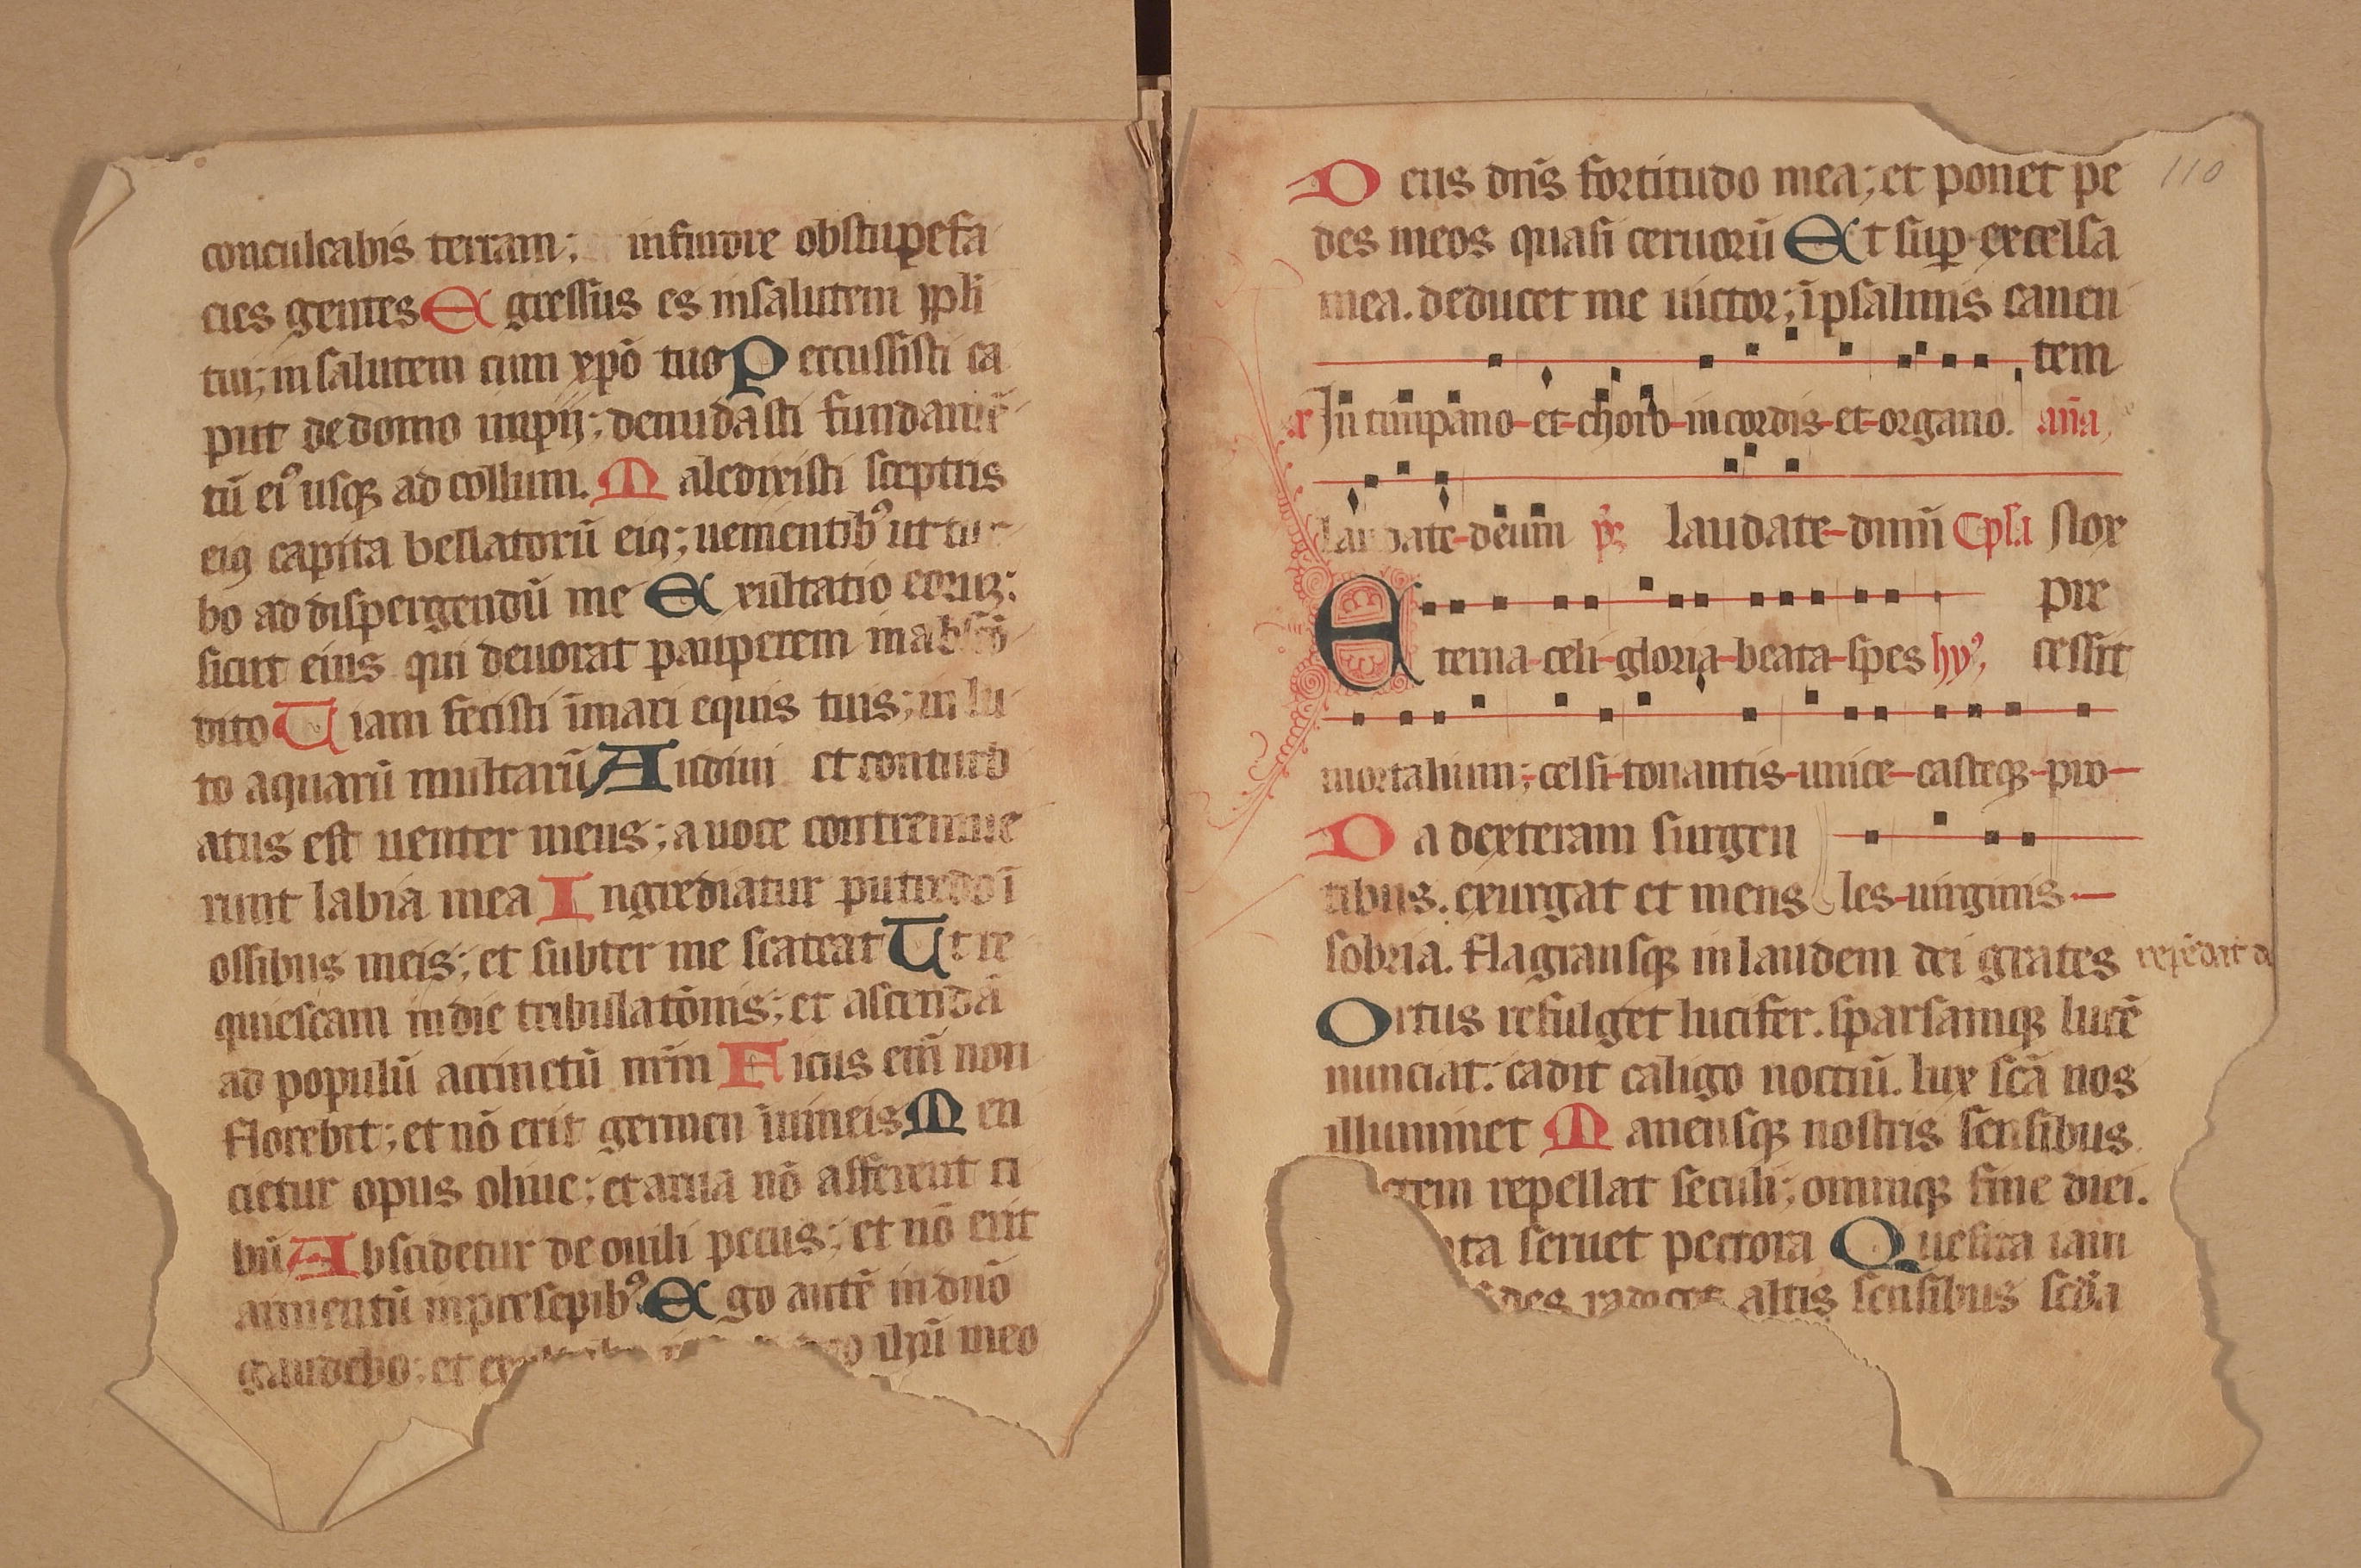 conculcabis terram; in furore obstupefa
cies gentes Egressus es insalutem ppli
tui; in salutem cum xpō tuo Percussisti ca
put de domo impij; denudasti fundamē
tū eiꝰ usqꝫ ad collum. Maledixisti sceptris
eiꝰ capita bellatorū eiꝰ; uenientibꝰ ut tur
bo ad dispergendū me Exultatio eoruꝫ;
sicut eius qui deuorat pauperem in abscō
dito Uiam fecisti ī mari equis tuis; in lu
to aquarū multarū Audiui et conturb
atus est uenter meus; a uoce contremue
runt labia mea Ingrediatur putredo ī
ossibus meis; et subter me scateat Ut re
quiescam in die tribulatōnis; et ascendā
ad populū accinctū nr̄m Ficus em̄ non
florebit; et nō erit germen ī uineis Men
cietur opus oliue; et arua nō afferent ci
bū Abscidetur de ouili pecus; et nō erit
armentū in presepibꝰ Ego autē in dn̄o
gaudebo; et ihū meo
110
Deus dn̄s fortitudo mea; et ponet pe
des meos quasi ceruorū Et suꝑ excelsa
mea. deducet me uictor; ī psalmis canen
tem
In timpano et choro in cordis et organo. an̄a
laudate deum ps laudate dnm̄ Cpsa nox
pre
Eterna celi gloria beata spes hyꝰ cessit
mortalium; celsi tonantis unice casteqꝫ pro
Da dexteram surgen
tibus. exurgat et mens les uirginis
sobria. flagransqꝫ in laudem dei grates repēdat d
Ortus refulget lucifer. sparsamqꝫ lucē
nunciat. cadit caligo noctiū. lux scā nos
illuminet Manensqꝫ nostris sensibus
ctem repellat seculi; omniqꝫ fine diei.
ata seruet pectora Quesita iam
des radicet altis sensibus secda